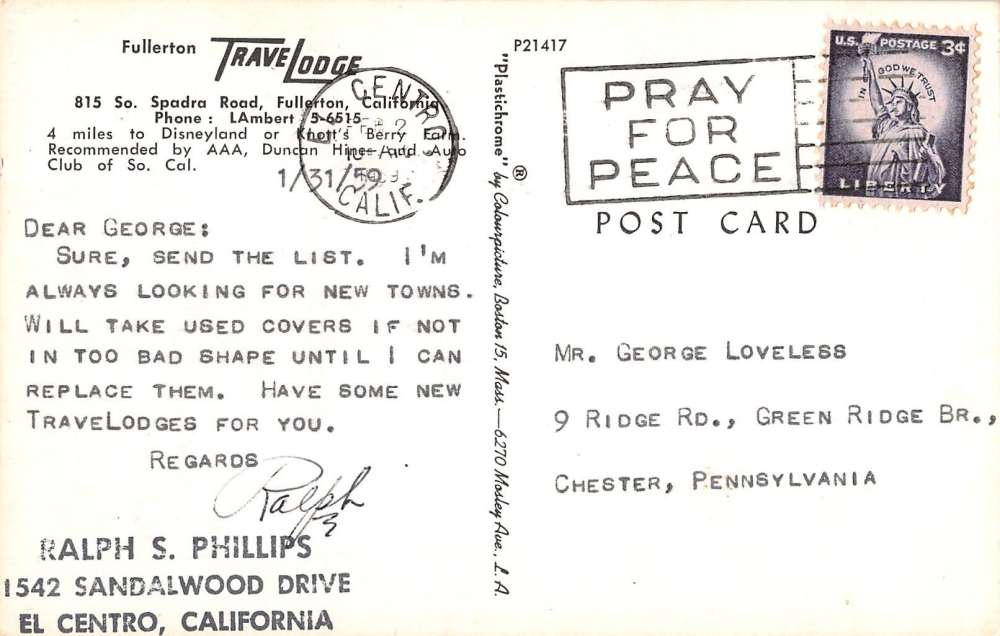 Fullerton TRAVELODGE
815 So. Spadra Road, Fullerton, California
Phone : LAmbert 5-6515
4 miles to Disneyland or Knott's Berry Farm.
Recommended by AAA, Duncan Hines and Auto
Club of So. Cal.
1/31/59
CENTRO
CALIF.
DEAR GEORGE:
SURE, SEND THE LIST. I'M
ALWAYS LOOKING FOR NEW TOWNS.
WILL TAKE USED COVERS IF NOT
IN TOO BAD SHAPE UNTIL I CAN
REPLACE THEM. HAVE SOME NEW
TRAVELODGES FOR YOU.
REGARDS
Ralph
RALPH S. PHILLIPS
1542 SANDALWOOD DRIVE
EL CENTRO, CALIFORNIA
P21417
"Plastichrome" ® by Colourpicture, Boston 15, Mass.—6270 Mosley Ave., L.A.
PRAY
FOR
PEACE
U.S. POSTAGE 3¢
IN GOD WE TRUST
LIBERTY
POST CARD
MR. GEORGE LOVELESS
9 RIDGE RD., GREEN RIDGE BR.,
CHESTER, PENNSYLVANIA